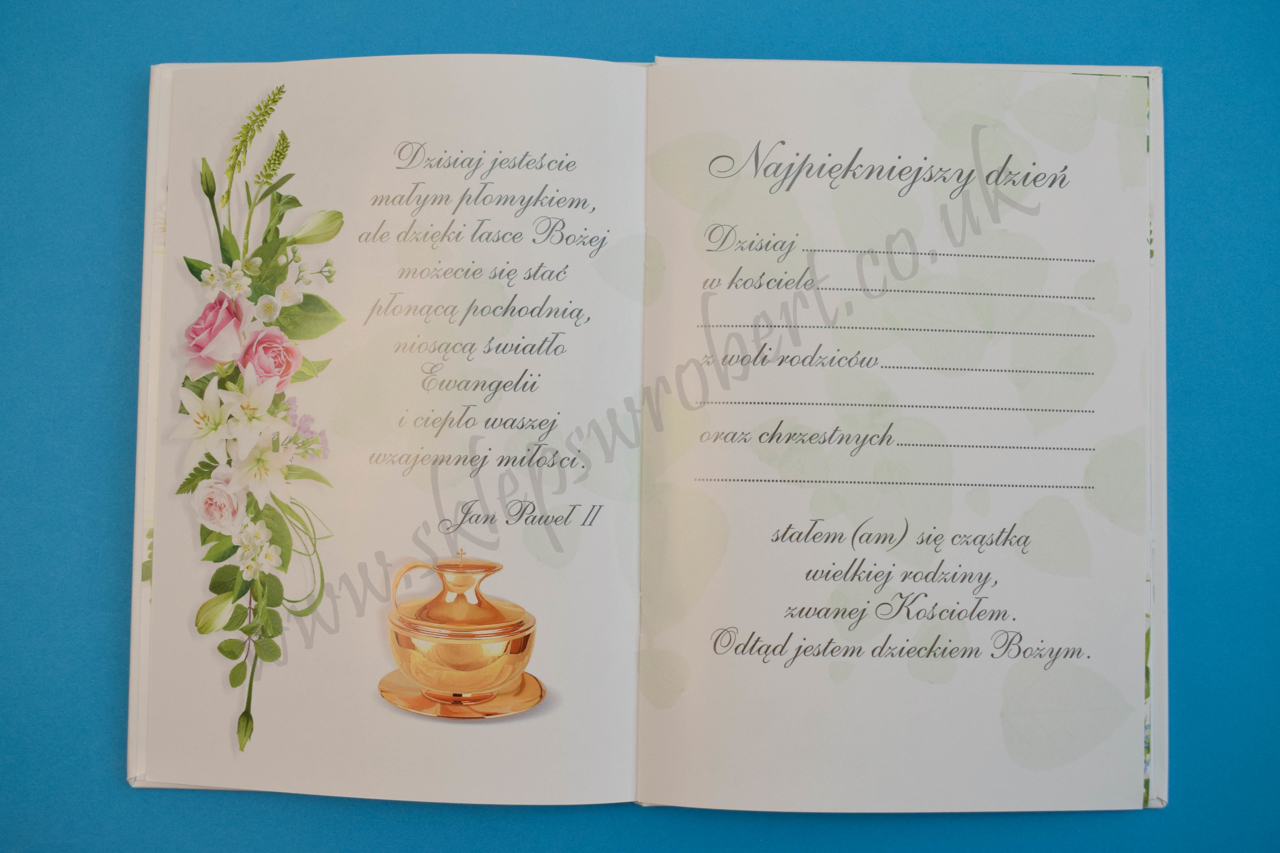 Dzisiaj jesteście
małym płomykiem,
ale dzięki łasce Bożej
możecie się stać
płonącą pochodnią,
niosącą światło
Ewangelii
i ciepło waszej
wzajemnej miłości.
Jan Paweł II
Najpiękniejszy dzień
Dzisiaj
w kościele
z woli rodziców
oraz chrzestnych
stałem (am) się cząstką
wielkiej rodziny,
zwanej Kościołem.
Odtąd jestem dzieckiem Bożym.
www.sklepswrobert.co.uk